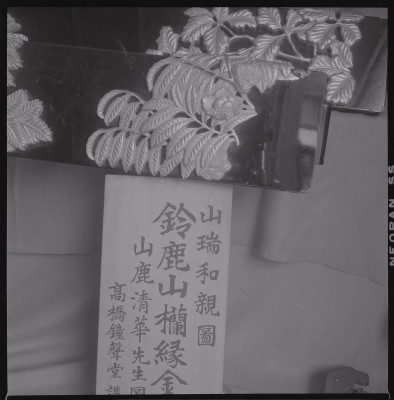 山瑞和親圖
鈴鹿山欄縁金
山鹿清華先生圖
高橋鐘聲堂謹
NEOPAN SS